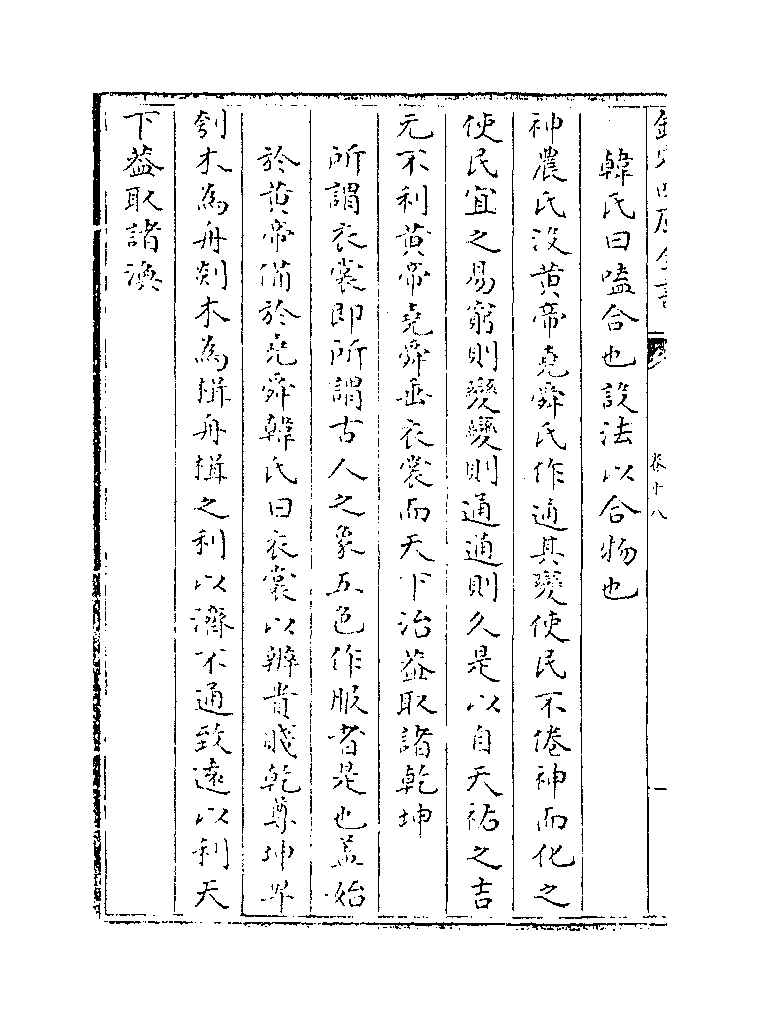 欽定四庫全書
卷十八
韓氏曰嗑合也設法以合物也
神農氏沒黄帝堯舜氏作通其變使民不倦神而化之
使民宜之易窮則變變則通通則久是以自天祐之吉
无不利黄帝堯舜垂衣裳而天下治蓋取諸乾坤
所謂衣裳即所謂古人之象五色作服者是也蓋始
於黄帝備於堯舜韓氏曰衣裳以辨貴賤乾尊坤卑
刳木為舟剡木為楫舟楫之利以濟不通致遠以利天
下蓋取諸渙